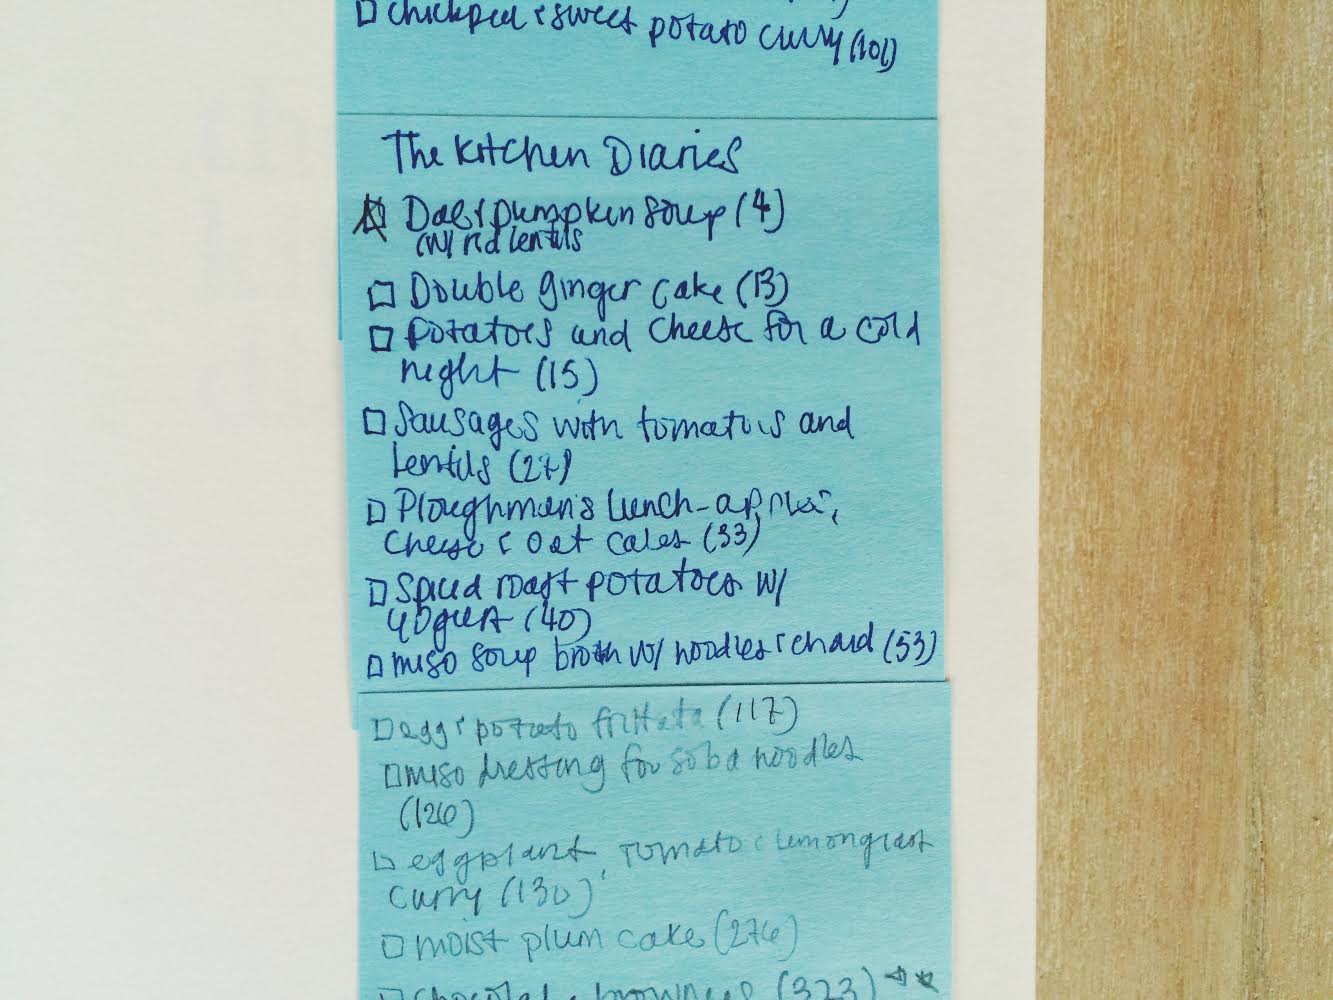 chickpea & sweet potato curry (101)
The Kitchen Diaries
Dal & pumpkin soup (4)
(w/ red lentils
Double ginger cake (13)
Potatoes and cheese for a cold
night (15)
Sausages with tomatoes and
lentils (27)
Ploughman's lunch - apples,
cheese & oat cakes (33)
Spiced roast potatoes w/
yogurt (40)
miso soup broth w/ noodles & chard (53)
egg & potato frittata (117)
miso dressing for soba noodles
(126)
eggplant, tomato & lemongrass
curry (130)
moist plum cake (276)
chocolate brownies (323)